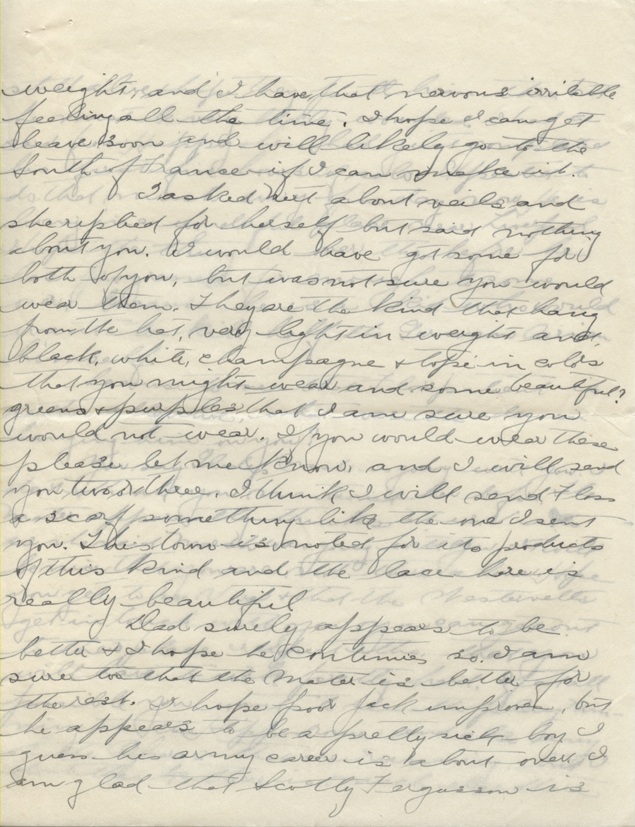 weight, and I have that nervous irritable
feeling all the time. I hope I can get
leave soon and will likely go to the
South of France if I can make it.
I asked about veils and
she replied for herself but said nothing
about you. I would have got some for
both of you, but was not sure you would
wear them. They are the kind that hang
from the hat, very light in weight and
black, white, champagne & tope in colors
that you might wear and some beautiful?
greens & purples that I am sure you
would not wear. If you would wear these
please let me know, and I will send
you two or three. I think I will send Floss
a scarf something like the one I sent
you. This town is noted for its products
of this kind and the lace here is
really beautiful
Dad surely appears to be
better & I hope he continues so. I am
sure too that the Mater is better for
the rest. I hope poor Jack improves, but
he appears to be a pretty sick boy I
guess his army career is about over. I
am glad that Scotty Fergusson is